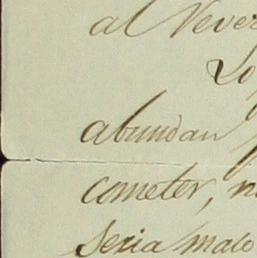 al Never
Lo
abundan
cometer, n
seria malo